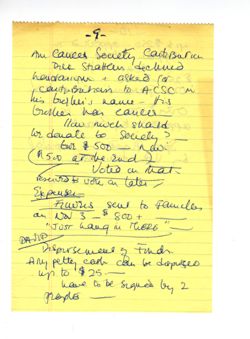 - 9 -
Am Cancer Society Contribution
Dick Statten declined
honorarium & asked for
contribution to ACSC in
his brother's name - His
brother has cancer
How much should
we donate to Society? -
for $500 - now
($500 at the end)
Voted on that
to vote on later -
Expenses
Flowers sent to families
on Nov 3 - $800 +
"Just hang in there"
DAVID
Disbursement of Funds
Any petty cash can be disposed
up to $25 -
have to be signed by 2
people -